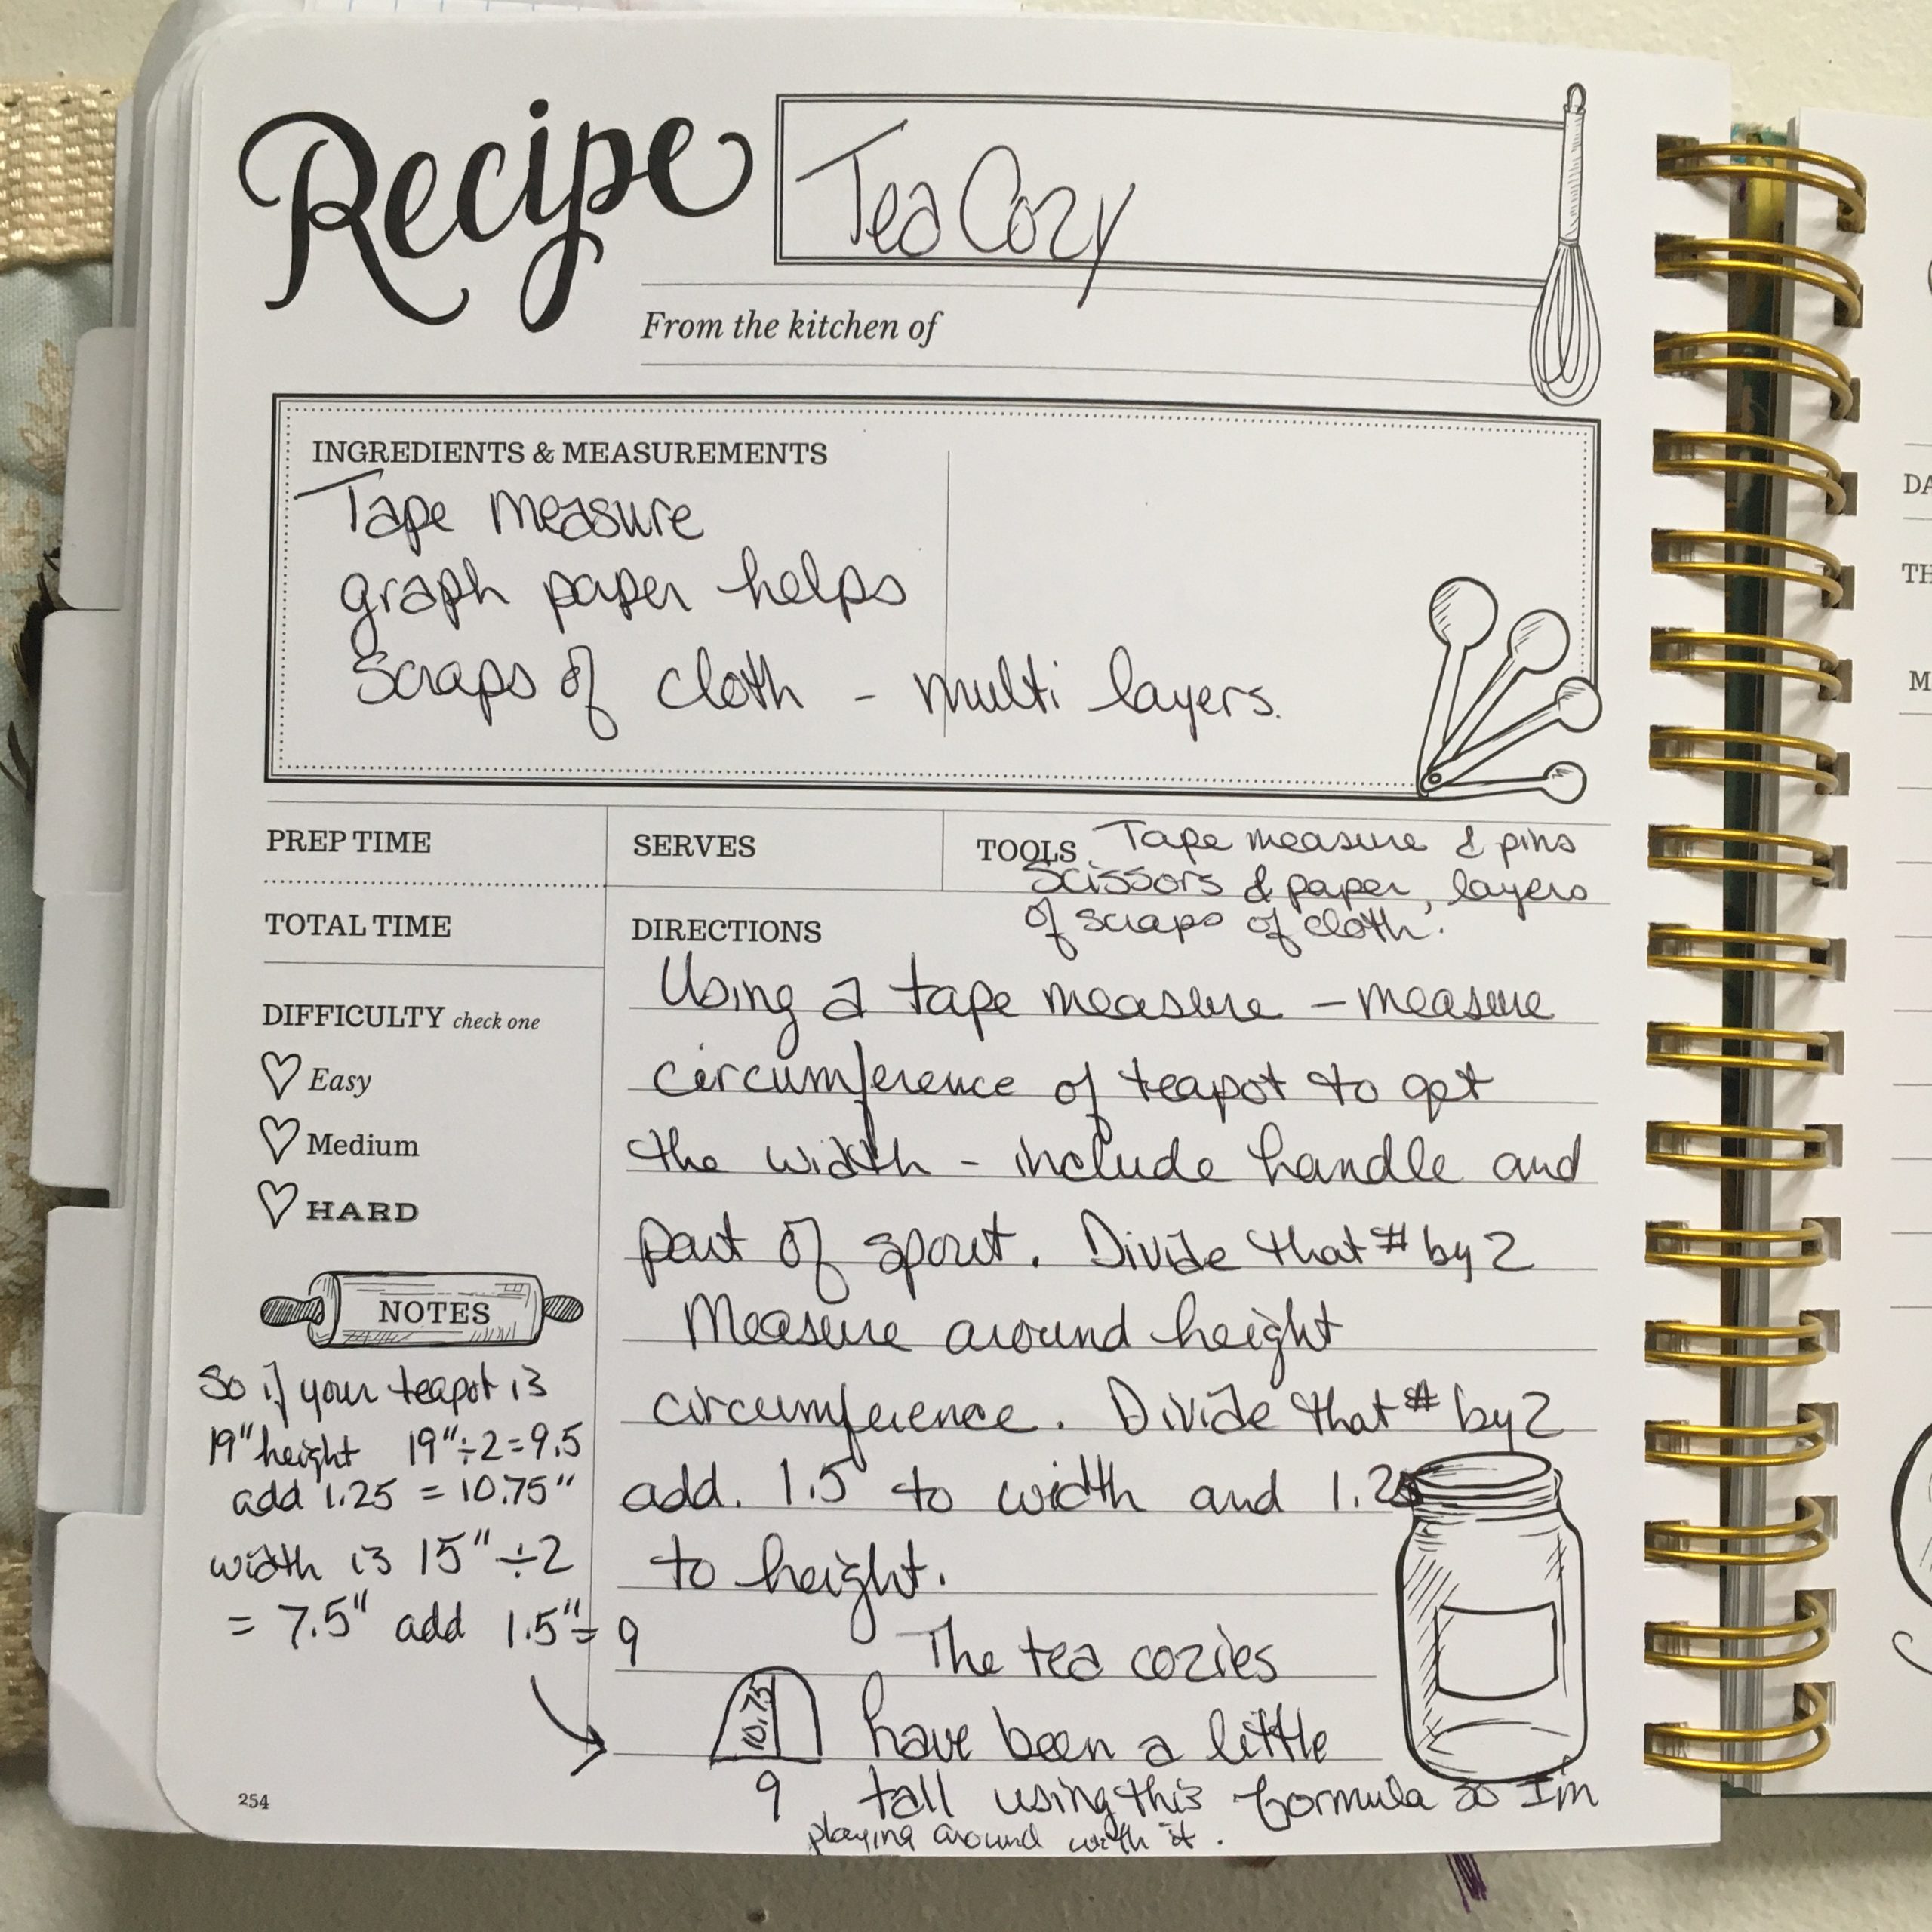 Recipe
Tea Cozy
From the kitchen of
INGREDIENTS & MEASUREMENTS
Tape measure
graph paper helps
Scraps of cloth - multi layers.
PREP TIME
SERVES
TOOLS Tape measure & pins
Scissors & paper, layers
of scraps of cloth.
TOTAL TIME
DIFFICULTY check one
Easy
Medium
HARD
NOTES
So if your teapot is
19" height 19" ÷ 2 = 9.5
add 1.25 = 10.75"
width is 15" ÷ 2
= 7.5" add 1.5" = 9
DIRECTIONS
Using a tape measure - measure
circumference of teapot to get
the width - include handle and
part of spout. Divide that # by 2
Measure around height
circumference. Divide that # by 2
add. 1.5 to width and 1.25
to height.
The tea cozies
have been a little
tall using this formula so I'm
playing around with it.
10.75
9
254
DA
TH
M